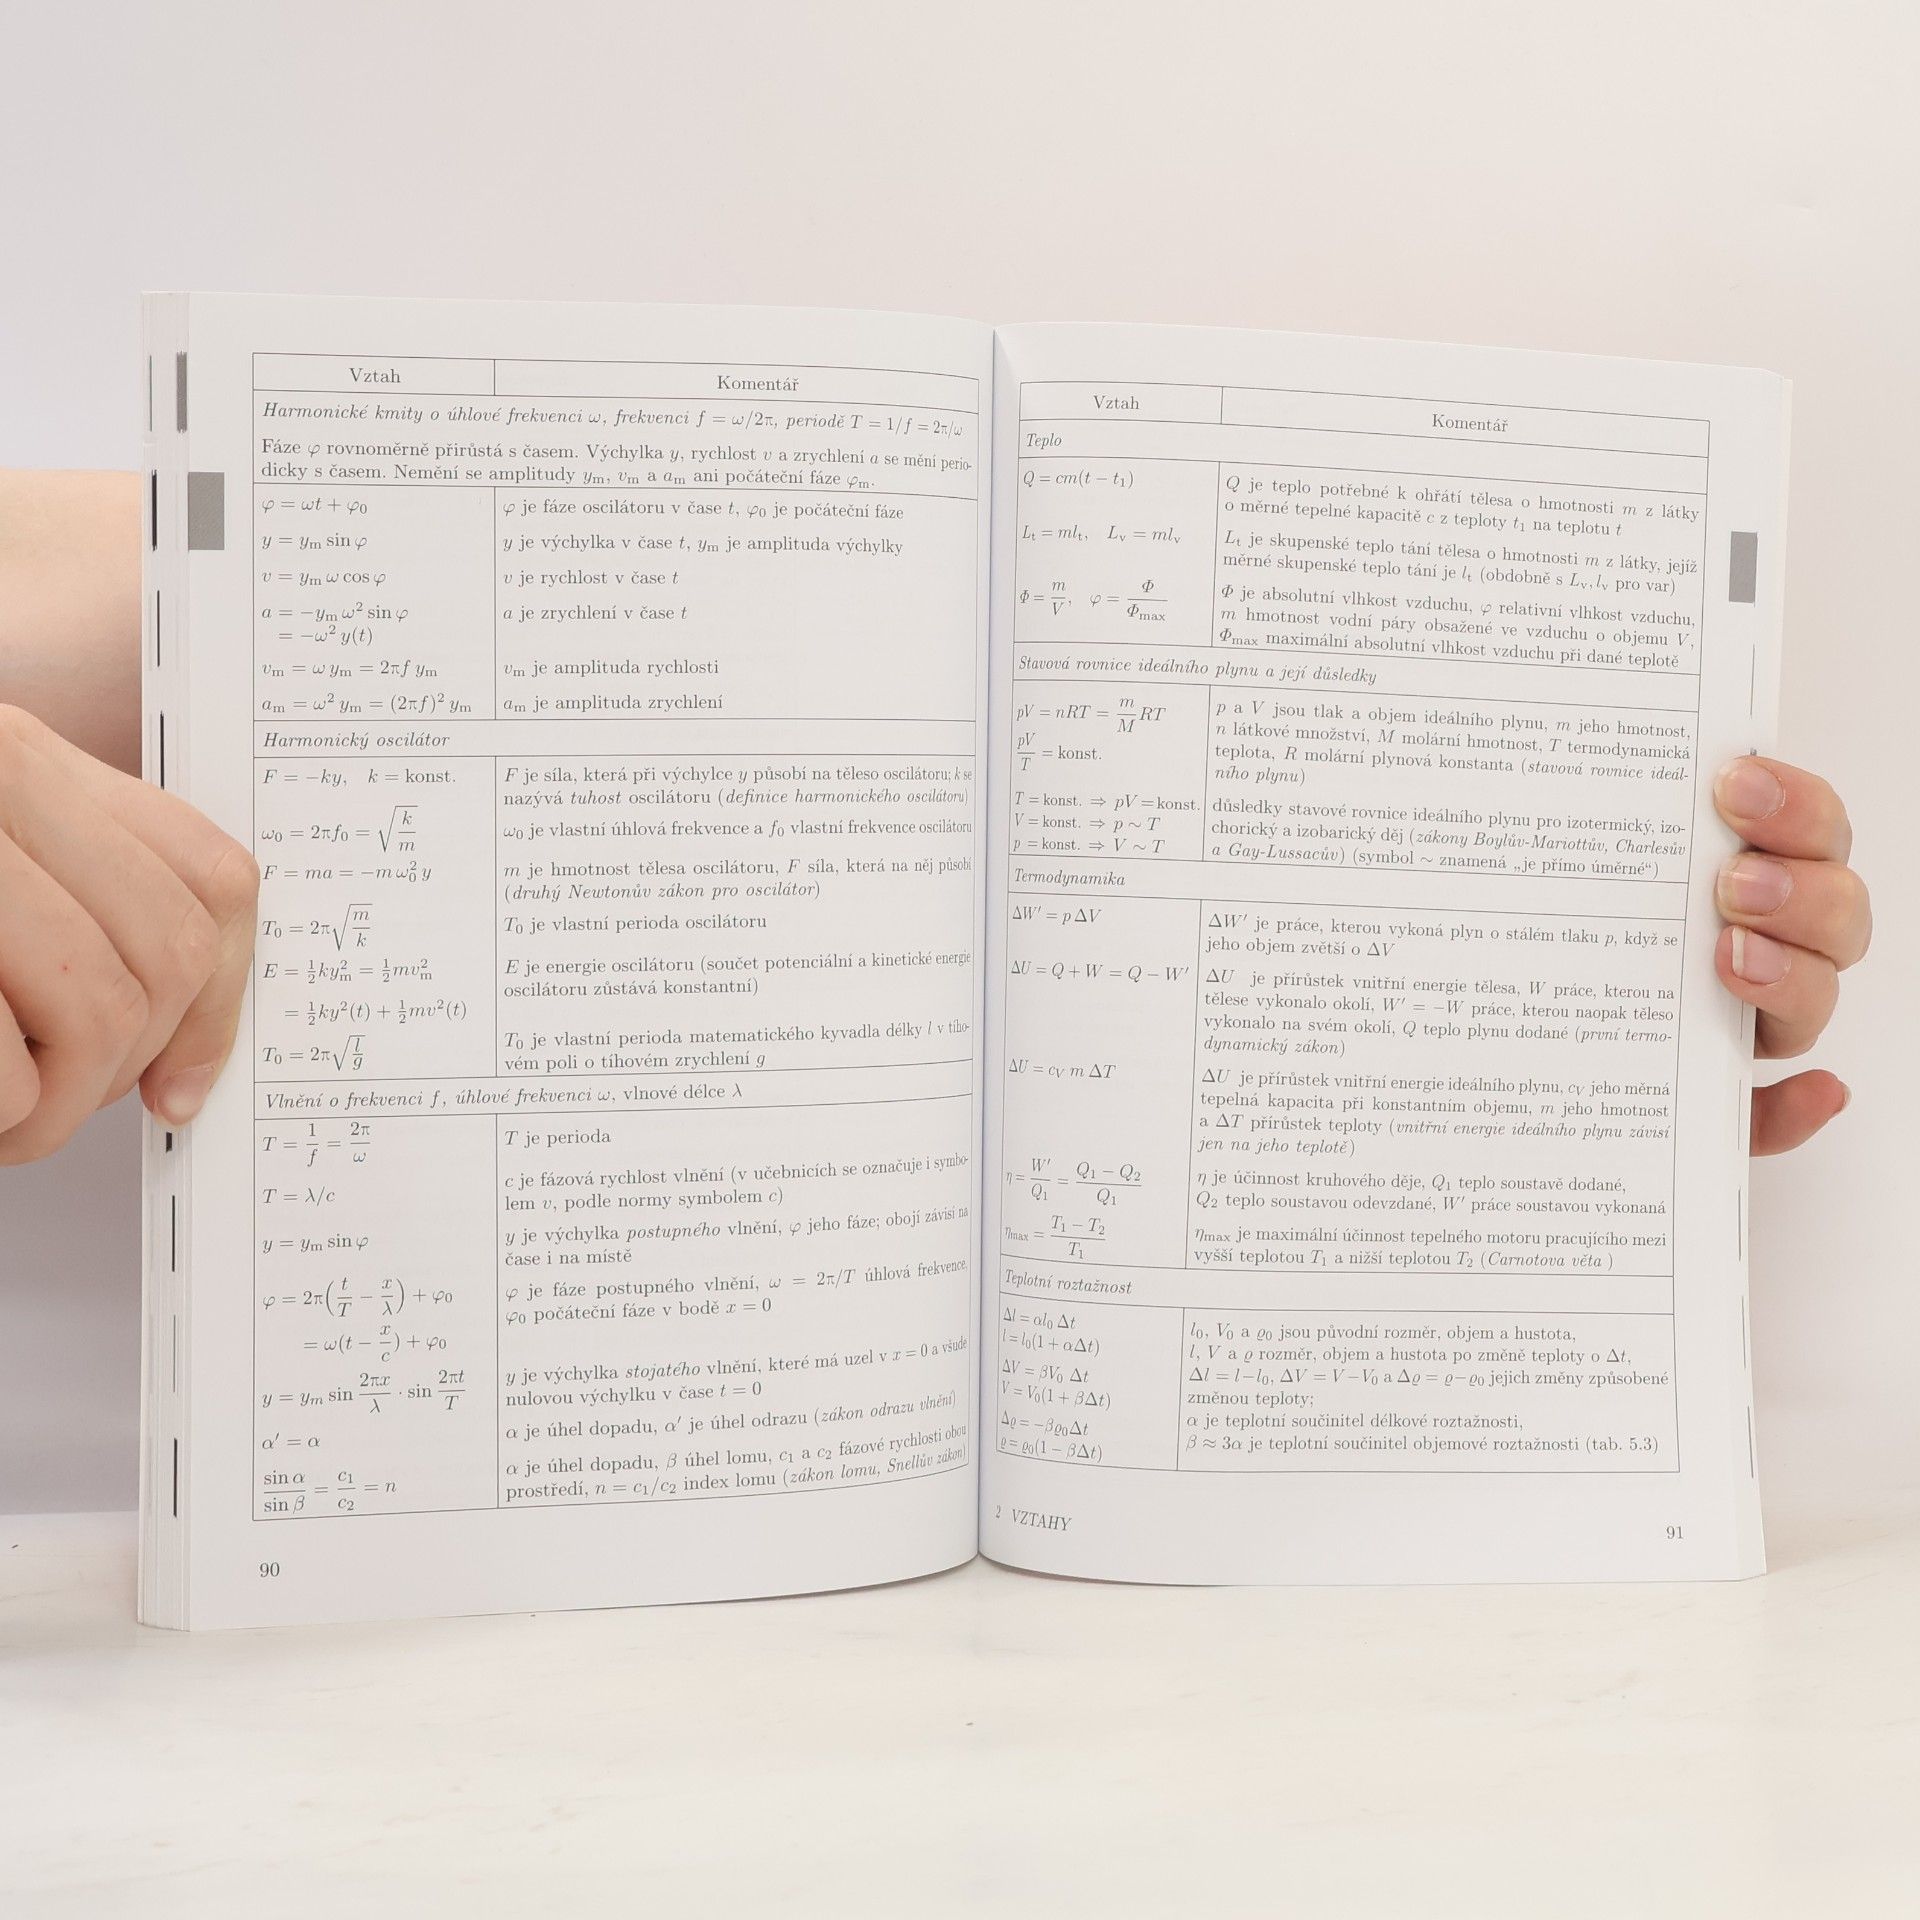 Vztah Komentář
Harmonické kmity o úhlové frekvenci ω, frekvenci f = ω/2π, periodě T = 1/f = 2π/ω
Fáze φ rovnoměrně přirůstá s časem. Výchylka y, rychlost v a zrychlení a se mění perio-
dicky s časem. Nemění se amplitudy yₘ, vₘ a aₘ ani počáteční fáze φₘ.
φ = ωt + φ₀ φ je fáze oscilátoru v čase t, φ₀ je počáteční fáze
y = yₘ sin φ y je výchylka v čase t, yₘ je amplituda výchylky
v = yₘ ω cos φ v je rychlost v čase t
a = −yₘ ω² sin φ a je zrychlení v čase t
= −ω² y(t)
vₘ = ω yₘ = 2πf yₘ vₘ je amplituda rychlosti
aₘ = ω² yₘ = (2πf)² yₘ aₘ je amplituda zrychlení
Harmonický oscilátor
F = −ky, k = konst. F je síla, která při výchylce y působí na těleso oscilátoru; k se
nazývá tuhost oscilátoru (definice harmonického oscilátoru)
ω₀ = 2πf₀ = √(k/m) ω₀ je vlastní úhlová frekvence a f₀ vlastní frekvence oscilátoru
F = ma = −m ω₀² y m je hmotnost tělesa oscilátoru, F síla, která na něj působí
(druhý Newtonův zákon pro oscilátor)
T₀ = 2π√(m/k) T₀ je vlastní perioda oscilátoru
E = ½kyₘ² = ½mvₘ² E je energie oscilátoru (součet potenciální a kinetické energie
oscilátoru zůstává konstantní)
= ½ky²(t) + ½mv²(t)
T₀ = 2π√(l/g) T₀ je vlastní perioda matematického kyvadla délky l v tího-
vém poli o tíhovém zrychlení g
Vlnění o frekvenci f, úhlové frekvenci ω, vlnové délce λ
T = 1/f = 2π/ω T je perioda
T = λ/c c je fázová rychlost vlnění (v učebnicích se označuje i symbo-
lem v, podle normy symbolem c)
y = yₘ sin φ y je výchylka postupného vlnění, φ jeho fáze; obojí závisí na
čase i na místě
φ = 2π(t/T − x/λ) + φ₀ φ je fáze postupného vlnění, ω = 2π/T úhlová frekvence,
φ₀ počáteční fáze v bodě x = 0
= ω(t − x/c) + φ₀
y = yₘ sin 2πx/λ · sin 2πt/T y je výchylka stojatého vlnění, které má uzel v x = 0 a všude
nulovou výchylku v čase t = 0
α′ = α α je úhel dopadu, α′ je úhel odrazu (zákon odrazu vlnění)
sin α/sin β = c₁/c₂ = n α je úhel dopadu, β úhel lomu, c₁ a c₂ fázové rychlosti obou
prostředí, n = c₁/c₂ index lomu (zákon lomu, Snellův zákon)
90
Vztah Komentář
Teplo
Q = cm(t − t₁) Q je teplo potřebné k ohřátí tělesa o hmotnosti m z látky
o měrné tepelné kapacitě c z teploty t₁ na teplotu t
Lₜ = mlₜ, Lᵥ = mlᵥ Lₜ je skupenské teplo tání tělesa o hmotnosti m z látky, jejíž
měrné skupenské teplo tání je lₜ (obdobně s Lᵥ, lᵥ pro var)
Φ = m/V, φ = Φ/Φmax Φ je absolutní vlhkost vzduchu, φ relativní vlhkost vzduchu,
m hmotnost vodní páry obsažené ve vzduchu o objemu V,
Φmax maximální absolutní vlhkost vzduchu při dané teplotě
Stavová rovnice ideálního plynu a její důsledky
pV = nRT = m/M RT p a V jsou tlak a objem ideálního plynu, m jeho hmotnost,
n látkové množství, M molární hmotnost, T termodynamická
pV/T = konst. teplota, R molární plynová konstanta (stavová rovnice ideál-
ního plynu)
T = konst. ⇒ pV = konst. důsledky stavové rovnice ideálního plynu pro izotermický, izo-
V = konst. ⇒ p ∼ T chorický a izobarický děj (zákony Boylův-Mariottův, Charlesův
p = konst. ⇒ V ∼ T a Gay-Lussacův) (symbol ∼ znamená „je přímo úměrné“)
Termodynamika
ΔW′ = p ΔV ΔW′ je práce, kterou vykoná plyn o stálém tlaku p, když se
jeho objem zvětší o ΔV
ΔU = Q + W = Q − W′ ΔU je přírůstek vnitřní energie tělesa, W práce, kterou na
tělese vykonalo okolí, W′ = −W práce, kterou naopak těleso
vykonalo na svém okolí, Q teplo plynu dodané (první termo-
dynamický zákon)
ΔU = c_V m ΔT ΔU je přírůstek vnitřní energie ideálního plynu, c_V jeho měrná
tepelná kapacita při konstantním objemu, m jeho hmotnost
a ΔT přírůstek teploty (vnitřní energie ideálního plynu závisí
jen na jeho teplotě)
η = W′/Q₁ = (Q₁ − Q₂)/Q₁ η je účinnost kruhového děje, Q₁ teplo soustavě dodané,
Q₂ teplo soustavou odevzdané, W′ práce soustavou vykonaná
ηmax = (T₁ − T₂)/T₁ ηmax je maximální účinnost tepelného motoru pracujícího mezi
vyšší teplotou T₁ a nižší teplotou T₂ (Carnotova věta )
Teplotní roztažnost
Δl = αl₀ Δt l₀, V₀ a ϱ₀ jsou původní rozměr, objem a hustota,
l = l₀(1 + αΔt) l, V a ϱ rozměr, objem a hustota po změně teploty o Δt,
ΔV = βV₀ Δt Δl = l−l₀, ΔV = V−V₀ a Δϱ = ϱ−ϱ₀ jejich změny způsobené
V = V₀(1 + βΔt) změnou teploty;
Δϱ = −βϱ₀Δt α je teplotní součinitel délkové roztažnosti,
ϱ = ϱ₀(1 − βΔt) β ≈ 3α je teplotní součinitel objemové roztažnosti (tab. 5.3)
2 VZTAHY 91